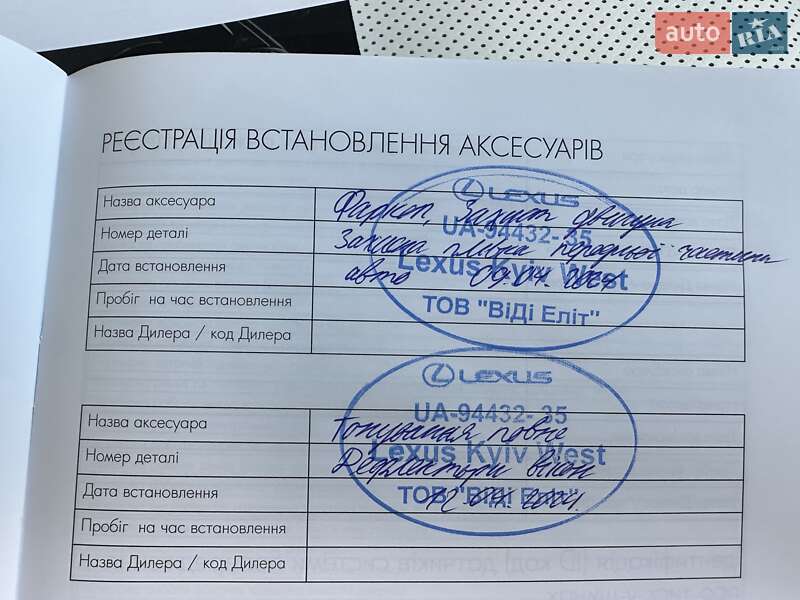 auto RIA
РЕЄСТРАЦІЯ ВСТАНОВЛЕННЯ АКСЕСУАРІВ
Назва аксесуара
Фаркоп, Захист двигуна
Номер деталі
Захисна плівка передньої частини
Дата встановлення
авто 09.04.
Пробіг на час встановлення
Назва Дилера / код Дилера
LEXUS
UA-94432-35
Lexus Kyiv West
ТОВ "ВіДі Еліт"
Назва аксесуара
Тонування повне
Номер деталі
Дефлектори вікон
Дата встановлення
Пробіг на час встановлення
Назва Дилера / код Дилера
LEXUS
UA-94432-35
Lexus Kyiv West
ТОВ "ВіДі Еліт"